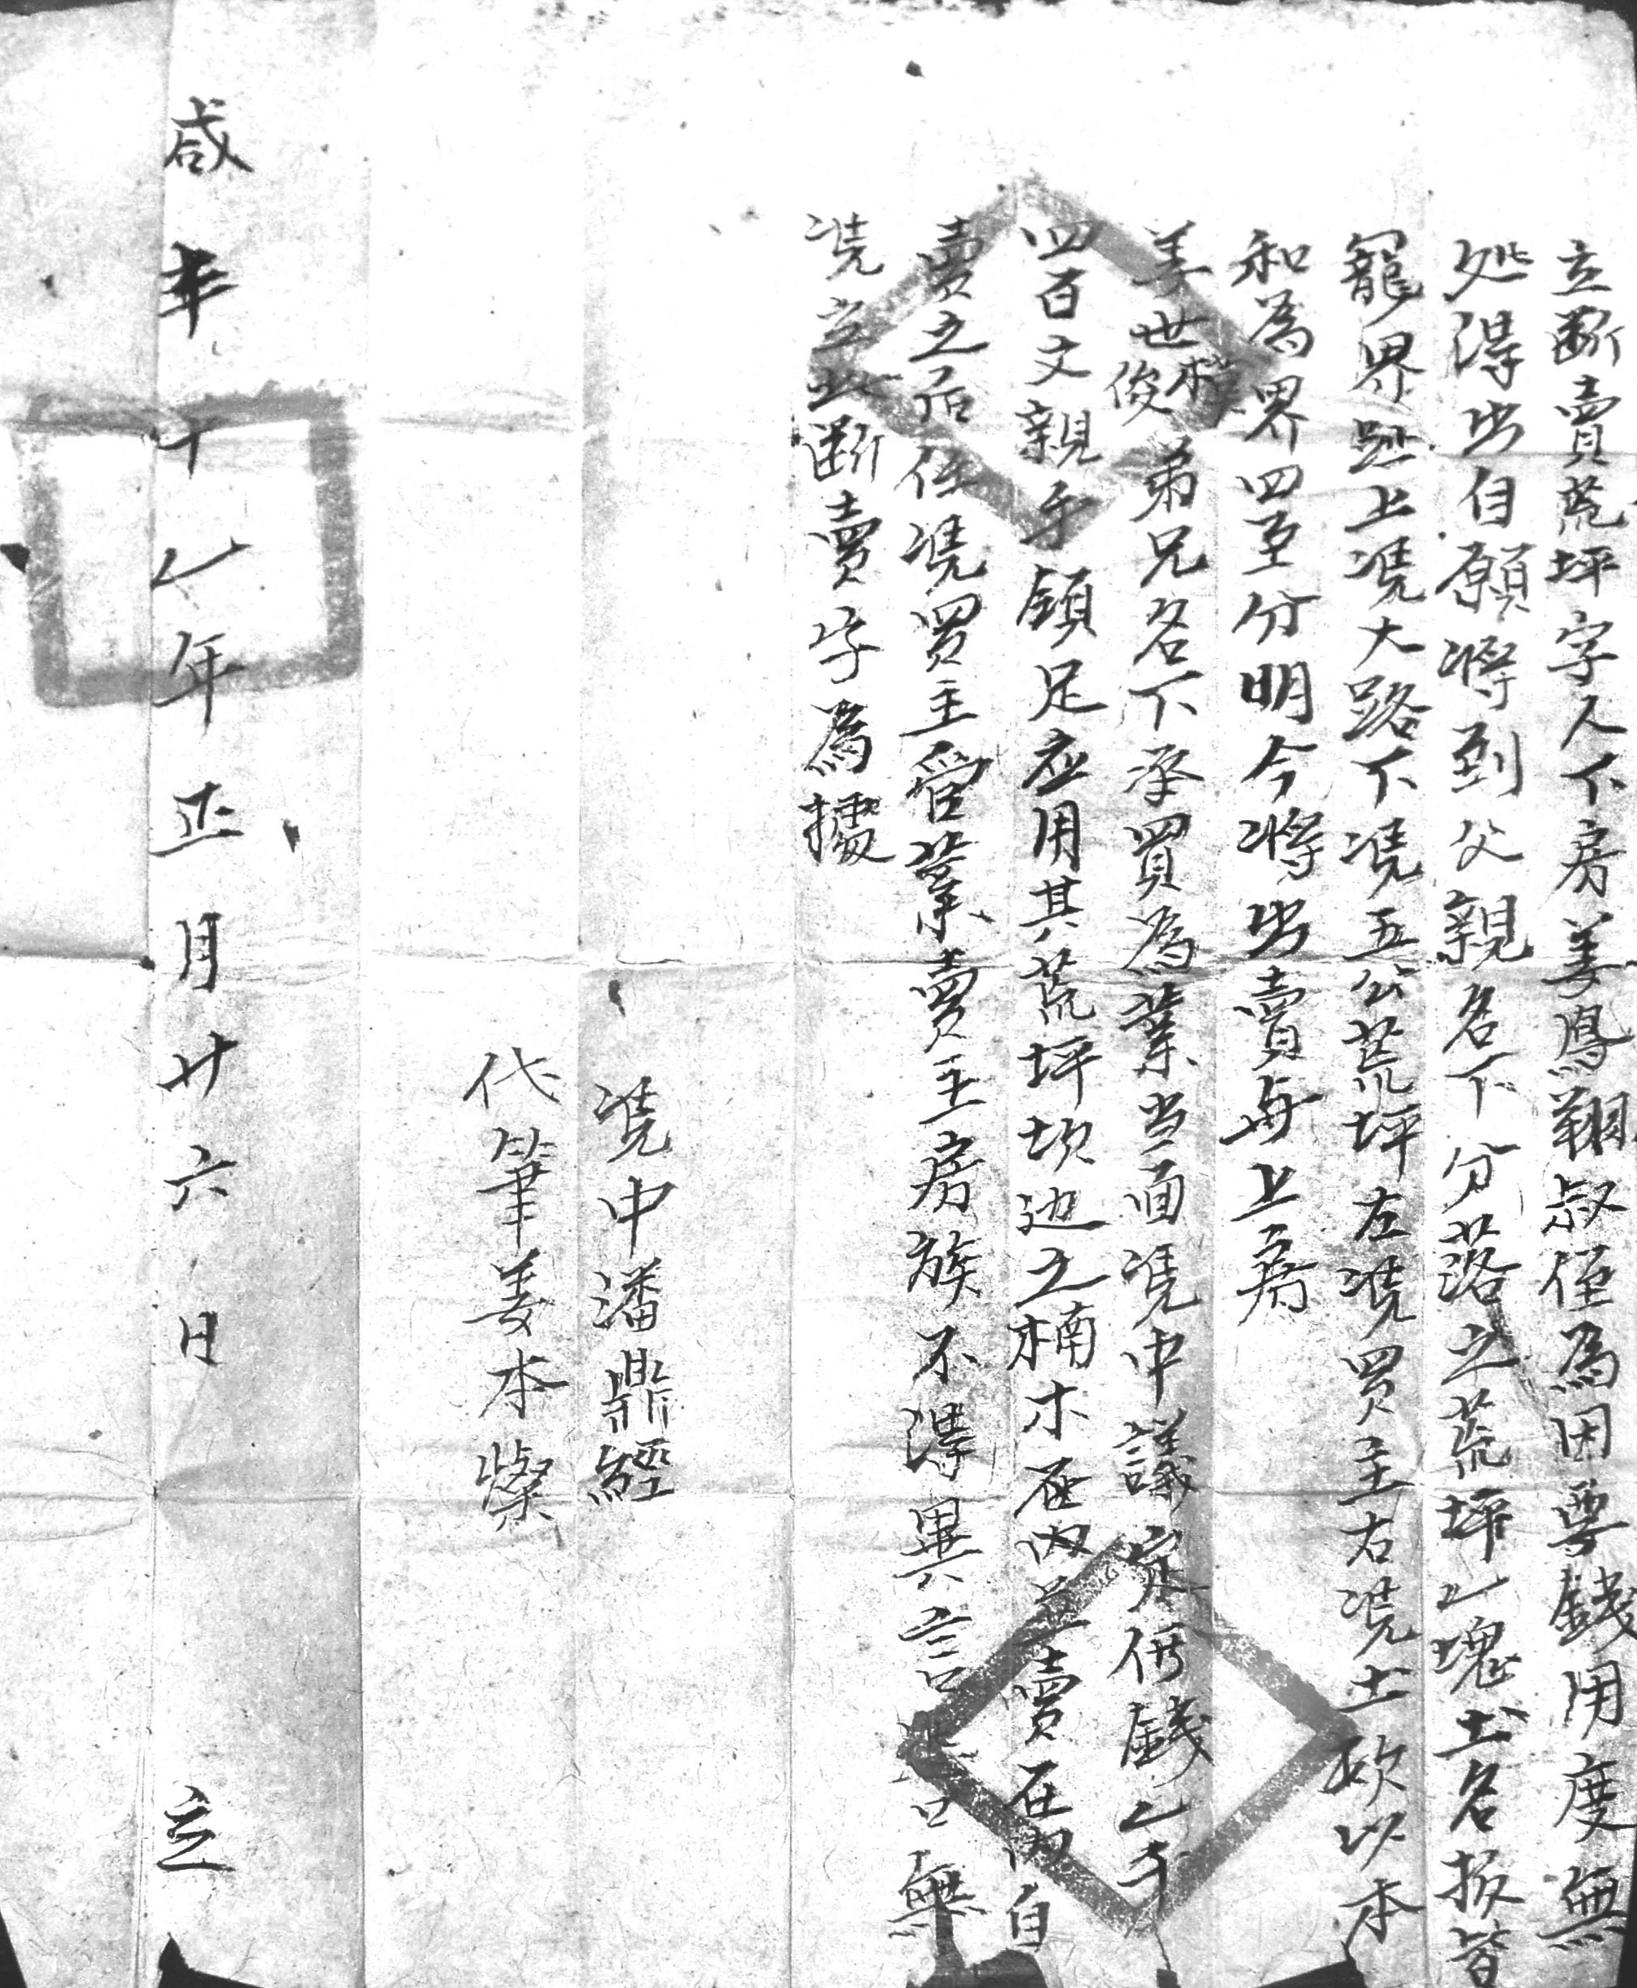 立斷賣荒坪字人下房姜鳳翔叔侄為因要錢用度無
処得出自願將到父親名下分落之荒坪乂塊土名扳皆
寵界趾上凴大路下凴五公荒坪左凴買主右凴土砍以本
和為界四至分明今將出賣與上房
姜世模俊弟兄名下承買為業当面凴中議定價錢乙千
四百文親手領足应用其荒坪坎边之楠木在內並賣在內自
賣之后任凴買主管業賣主房族不得異言口無
凴立此斷賣字為據
凴中潘鼎經
代筆姜本燦
咸丰十乙年正月廿六日 立